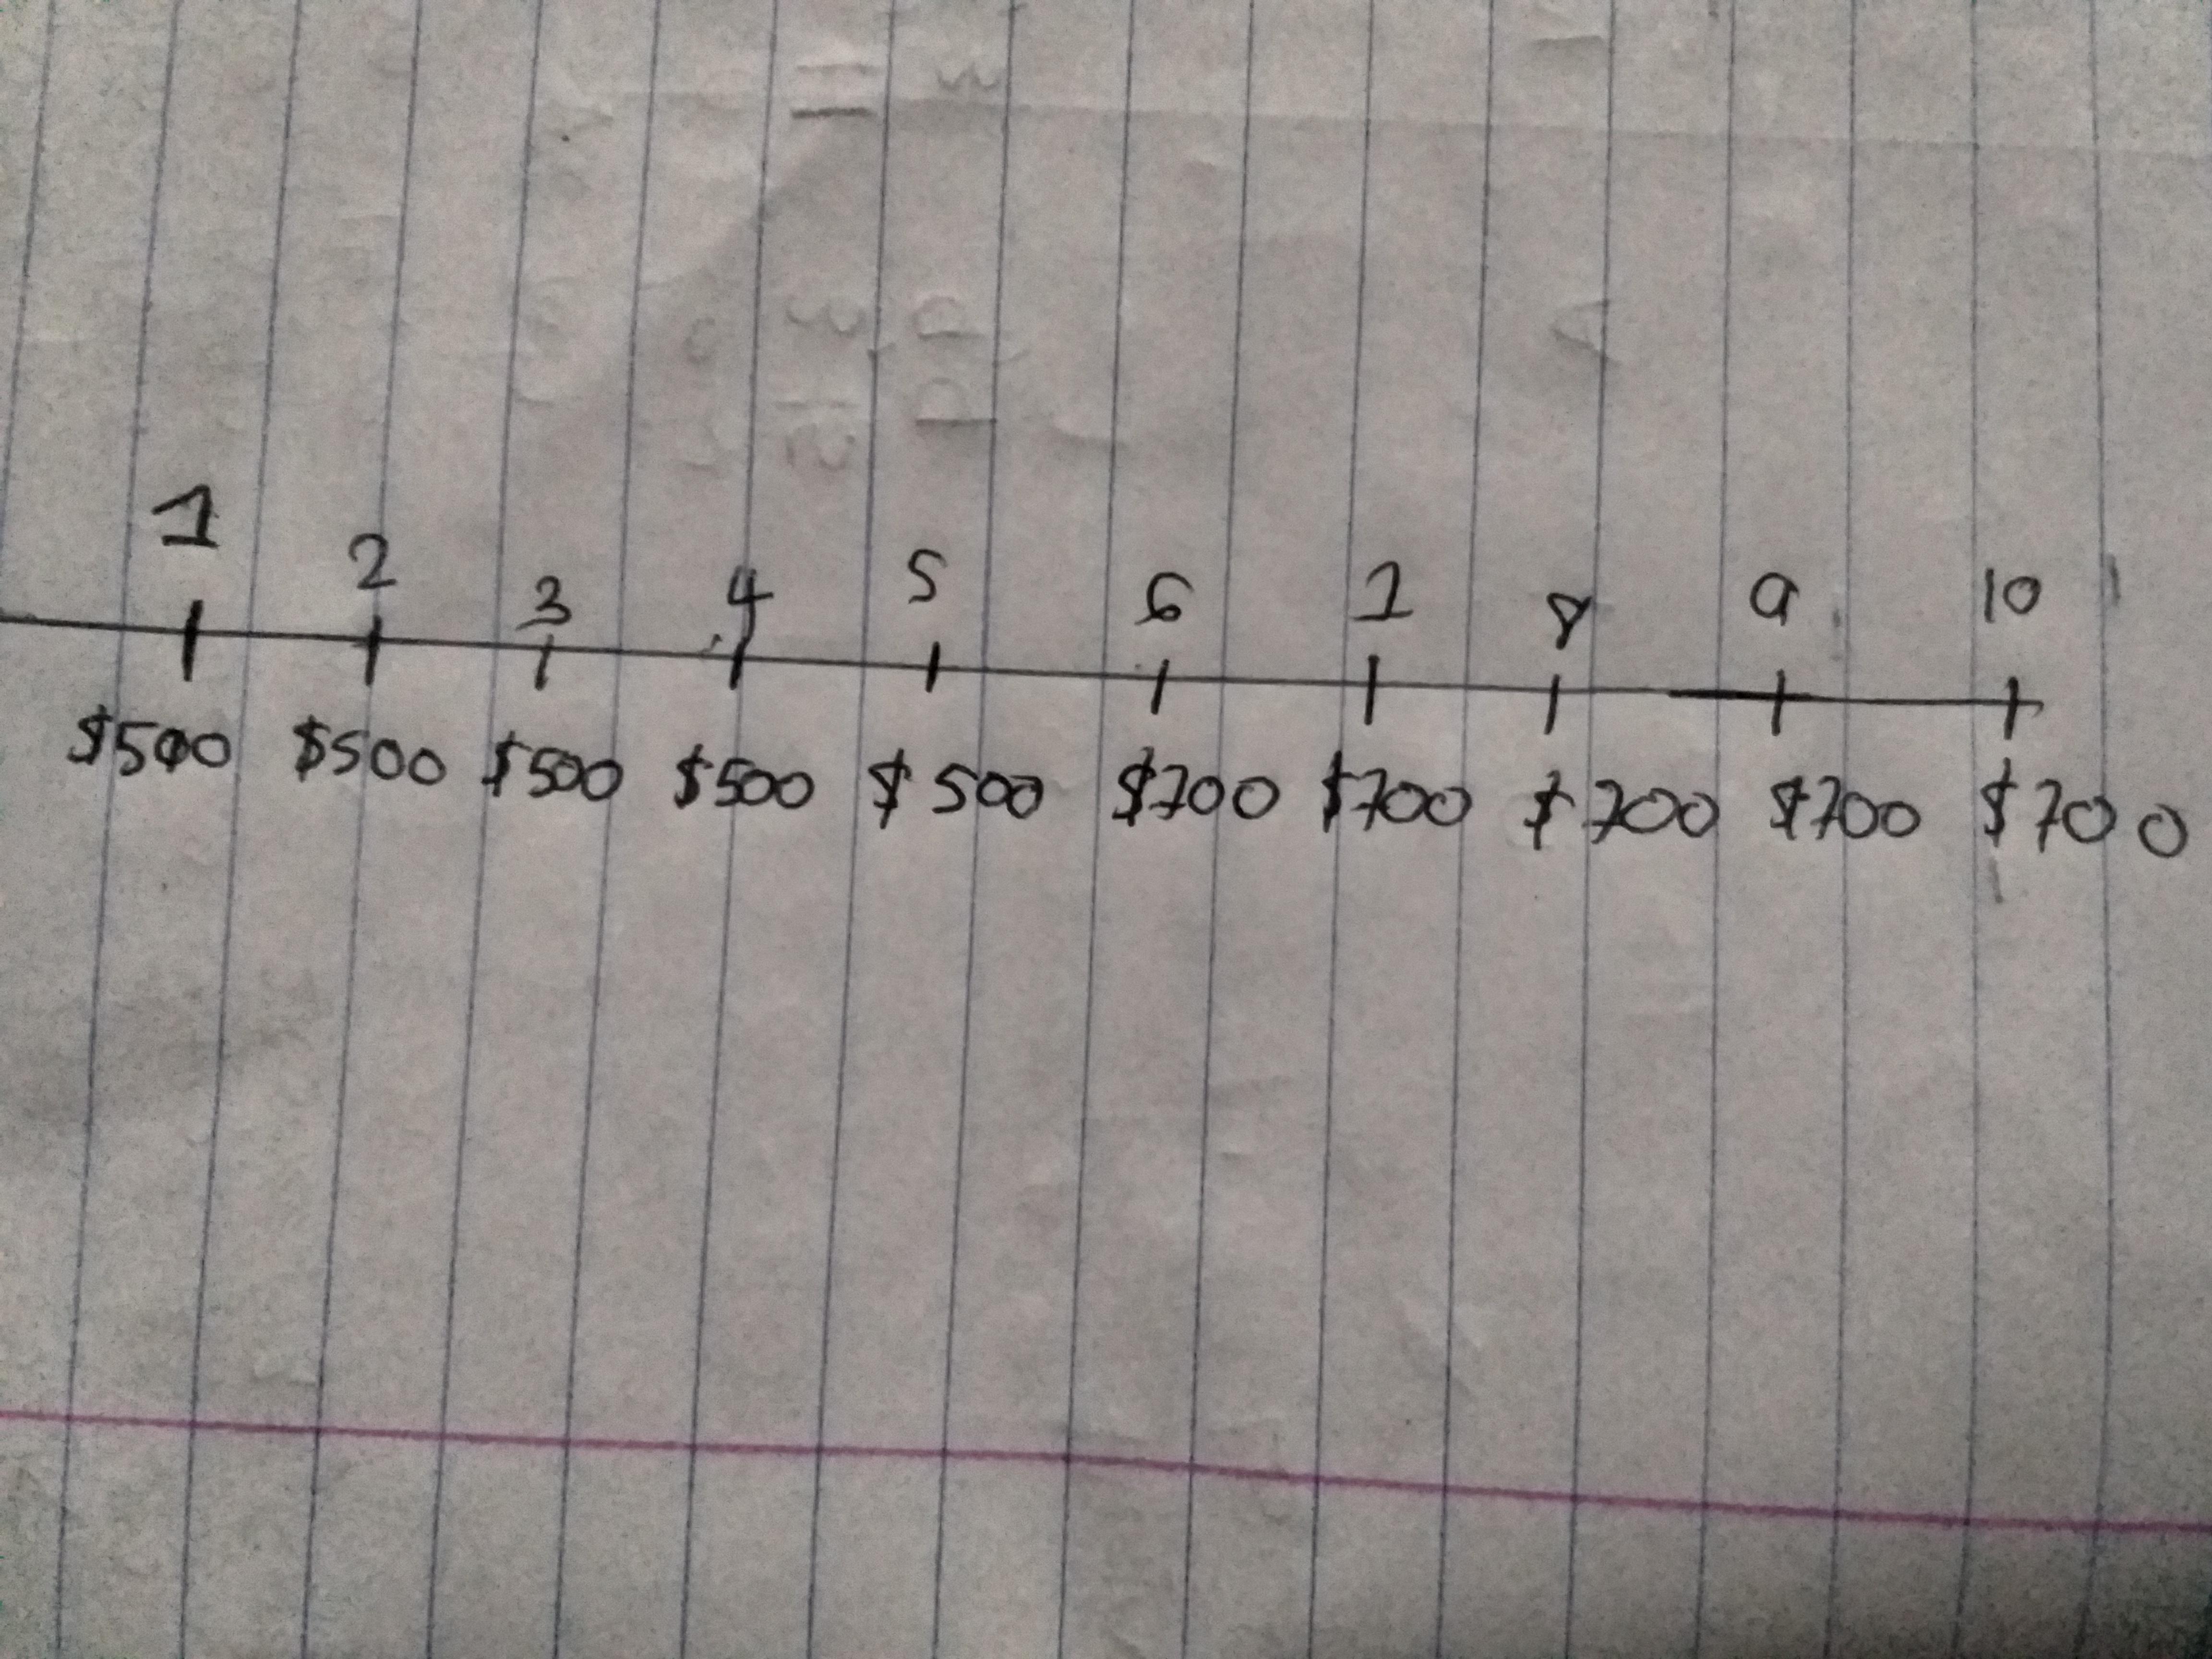 1 2 3 4 5 6 7 8 9 10
$500 $500 $500 $500 $500 $700 $700 $700 $700 $700